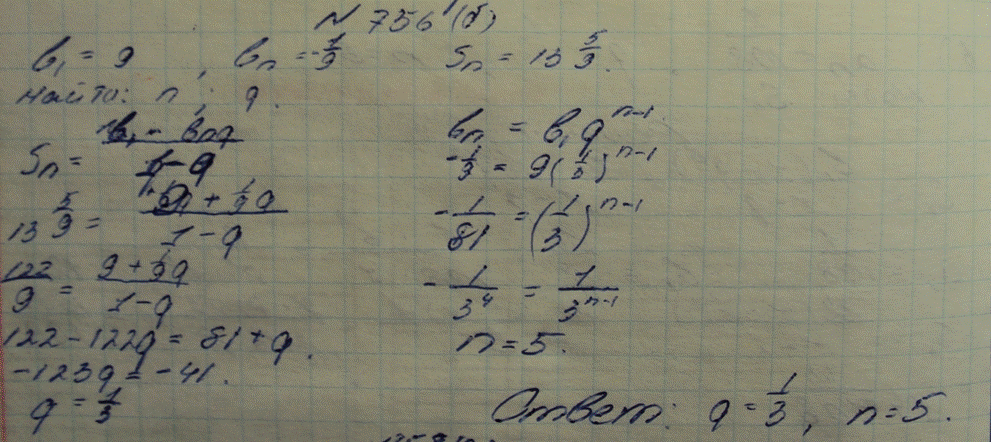 № 756 (б)
b₁ = 9 , bₙ = -1/9 Sₙ = 13 5/9.
Найти: n ; q.
Sₙ = (b₁ - bₙq)/(1 - q)
13 5/9 = (9 + 1/9 q)/(1 - q)
122/9 = (9 + 1/9 q)/(1 - q)
122 - 122q = 81 + q.
-123q = -41.
q = 1/3
bₙ = b₁qⁿ⁻¹.
-1/9 = 9(1/3)ⁿ⁻¹
-1/81 = (1/3)ⁿ⁻¹
-1/3⁴ = 1/3ⁿ⁻¹
n = 5.
Ответ: q = 1/3, n = 5.